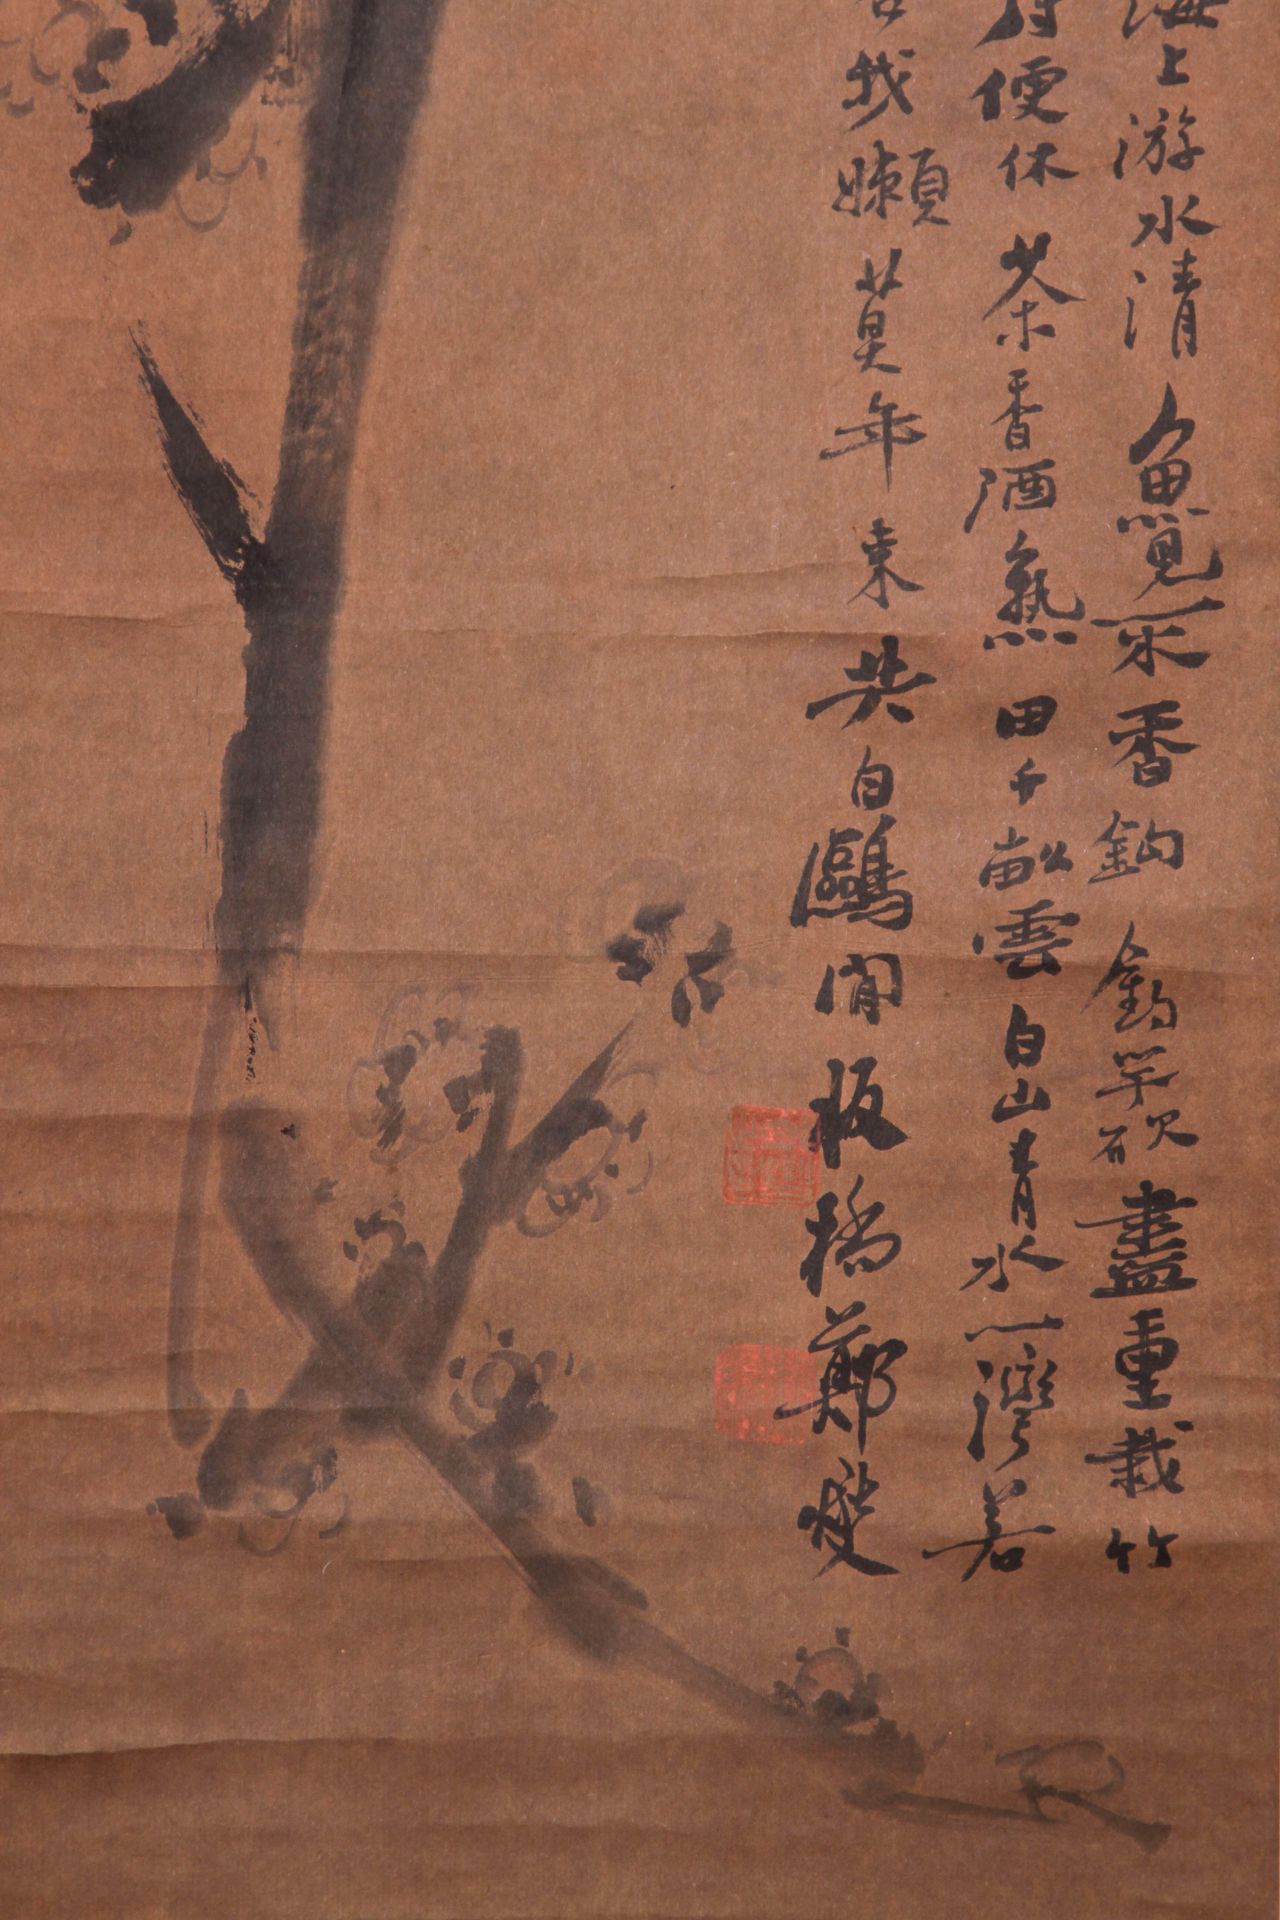 海上游水清魚見不香鈎釣竿砍盡重栽竹
得便休茶香酒熟田千畝雲白山青水一灣若
我嬾莫年來共白鷗閒板橋鄭燮